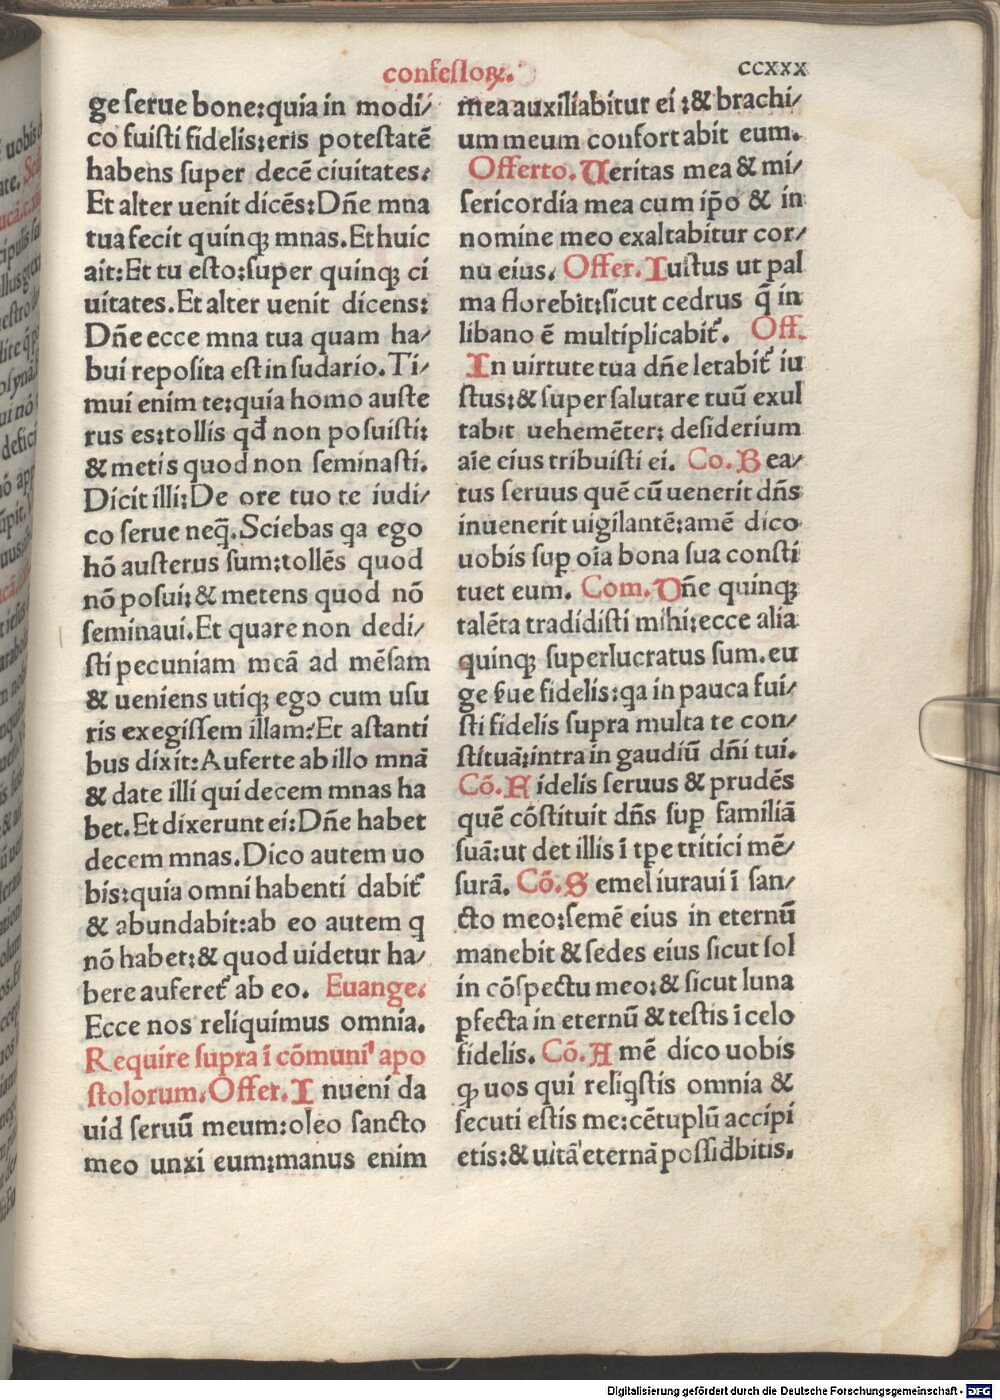 confessoꝝ.
ccxxx
ge serue bone:quia in modi/
co fuisti fidelis:eris potestatē
habens super decē ciuitates.
Et alter uenit dicēs:Dñe mna
tua fecit quinqꝫ mnas.Et huic
ait:Et tu esto:super quinqꝫ ci
uitates.Et alter uenit dicens:
Dñe ecce mna tua quam ha/
bui reposita est in sudario.Ti/
mui enim te:quia homo auste
rus es:tollis qđ non posuisti:
& metis quod non seminasti.
Dicit illi:De ore tuo te iudi/
co serue neq̄.Sciebas qa ego
hō austerus sum:tollēs quod
nō posui:& metens quod nō
seminaui.Et quare non dedi/
sti pecuniam meā ad mēsam
& ueniens utiqꝫ ego cum usu
ris exegissem illam?Et astanti
bus dixit:Auferte ab illo mnā
& date illi qui decem mnas ha
bet.Et dixerunt ei:Dñe habet
decem mnas.Dico autem uo
bis:quia omni habenti dabit᷑
& abundabit:ab eo autem q
nō habet:& quod uidetur ha/
bere auferet᷑ ab eo. Euange.
Ecce nos reliquimus omnia.
Require supra ī cōmuni' apo
stolorum.Offer.I nueni da
uid seruū meum:oleo sancto
meo unxi eum:manus enim
mea auxiliabitur ei:& brachi/
um meum confortabit eum.
Offerto.Ueritas mea & mi/
sericordia mea cum ip̄o & in
nomine meo exaltabitur cor/
nu eius. Offer.Iustus ut pal
ma florebit:sicut cedrus q̄ in
libano ē multiplicabit᷑. Off.
In uirtute tua dñe letabit᷑ iu
stus:& super salutare tuū exul
tabit uehemēter: desiderium
aīe eius tribuisti ei. Co.B ea/
tus seruus quē cū uenerit dñs
inuenerit uigilantē:amē dico
uobis suꝑ oīa bona sua consti
tuet eum. Com.Dñe quinqꝫ
talēta tradidisti mihi:ecce alia
quinqꝫ superlucratus sum.eu
ge ẜue fidelis:qa in pauca fui/
sti fidelis supra multa te con/
stituā:intra in gaudiū dñi tui.
Cō.F idelis seruus & prudēs
quē cōstituit dñs suꝑ familiā
suā:ut det illis ī tp̄e tritici mē/
surā. Cō.S emel iuraui ī san/
cto meo:semē eius in eternū
manebit & sedes eius sicut sol
in cōspectu meo:& sicut luna
ꝑfecta in eternū & testis ī celo
fidelis. Cō.A mē dico uobis
ꝙ uos qui reliqstis omnia &
secuti estis me:cētuplū accipi
etis:& uitā eternā possiđbitis.
Digitalisierung gefördert durch die Deutsche Forschungsgemeinschaft - DFG